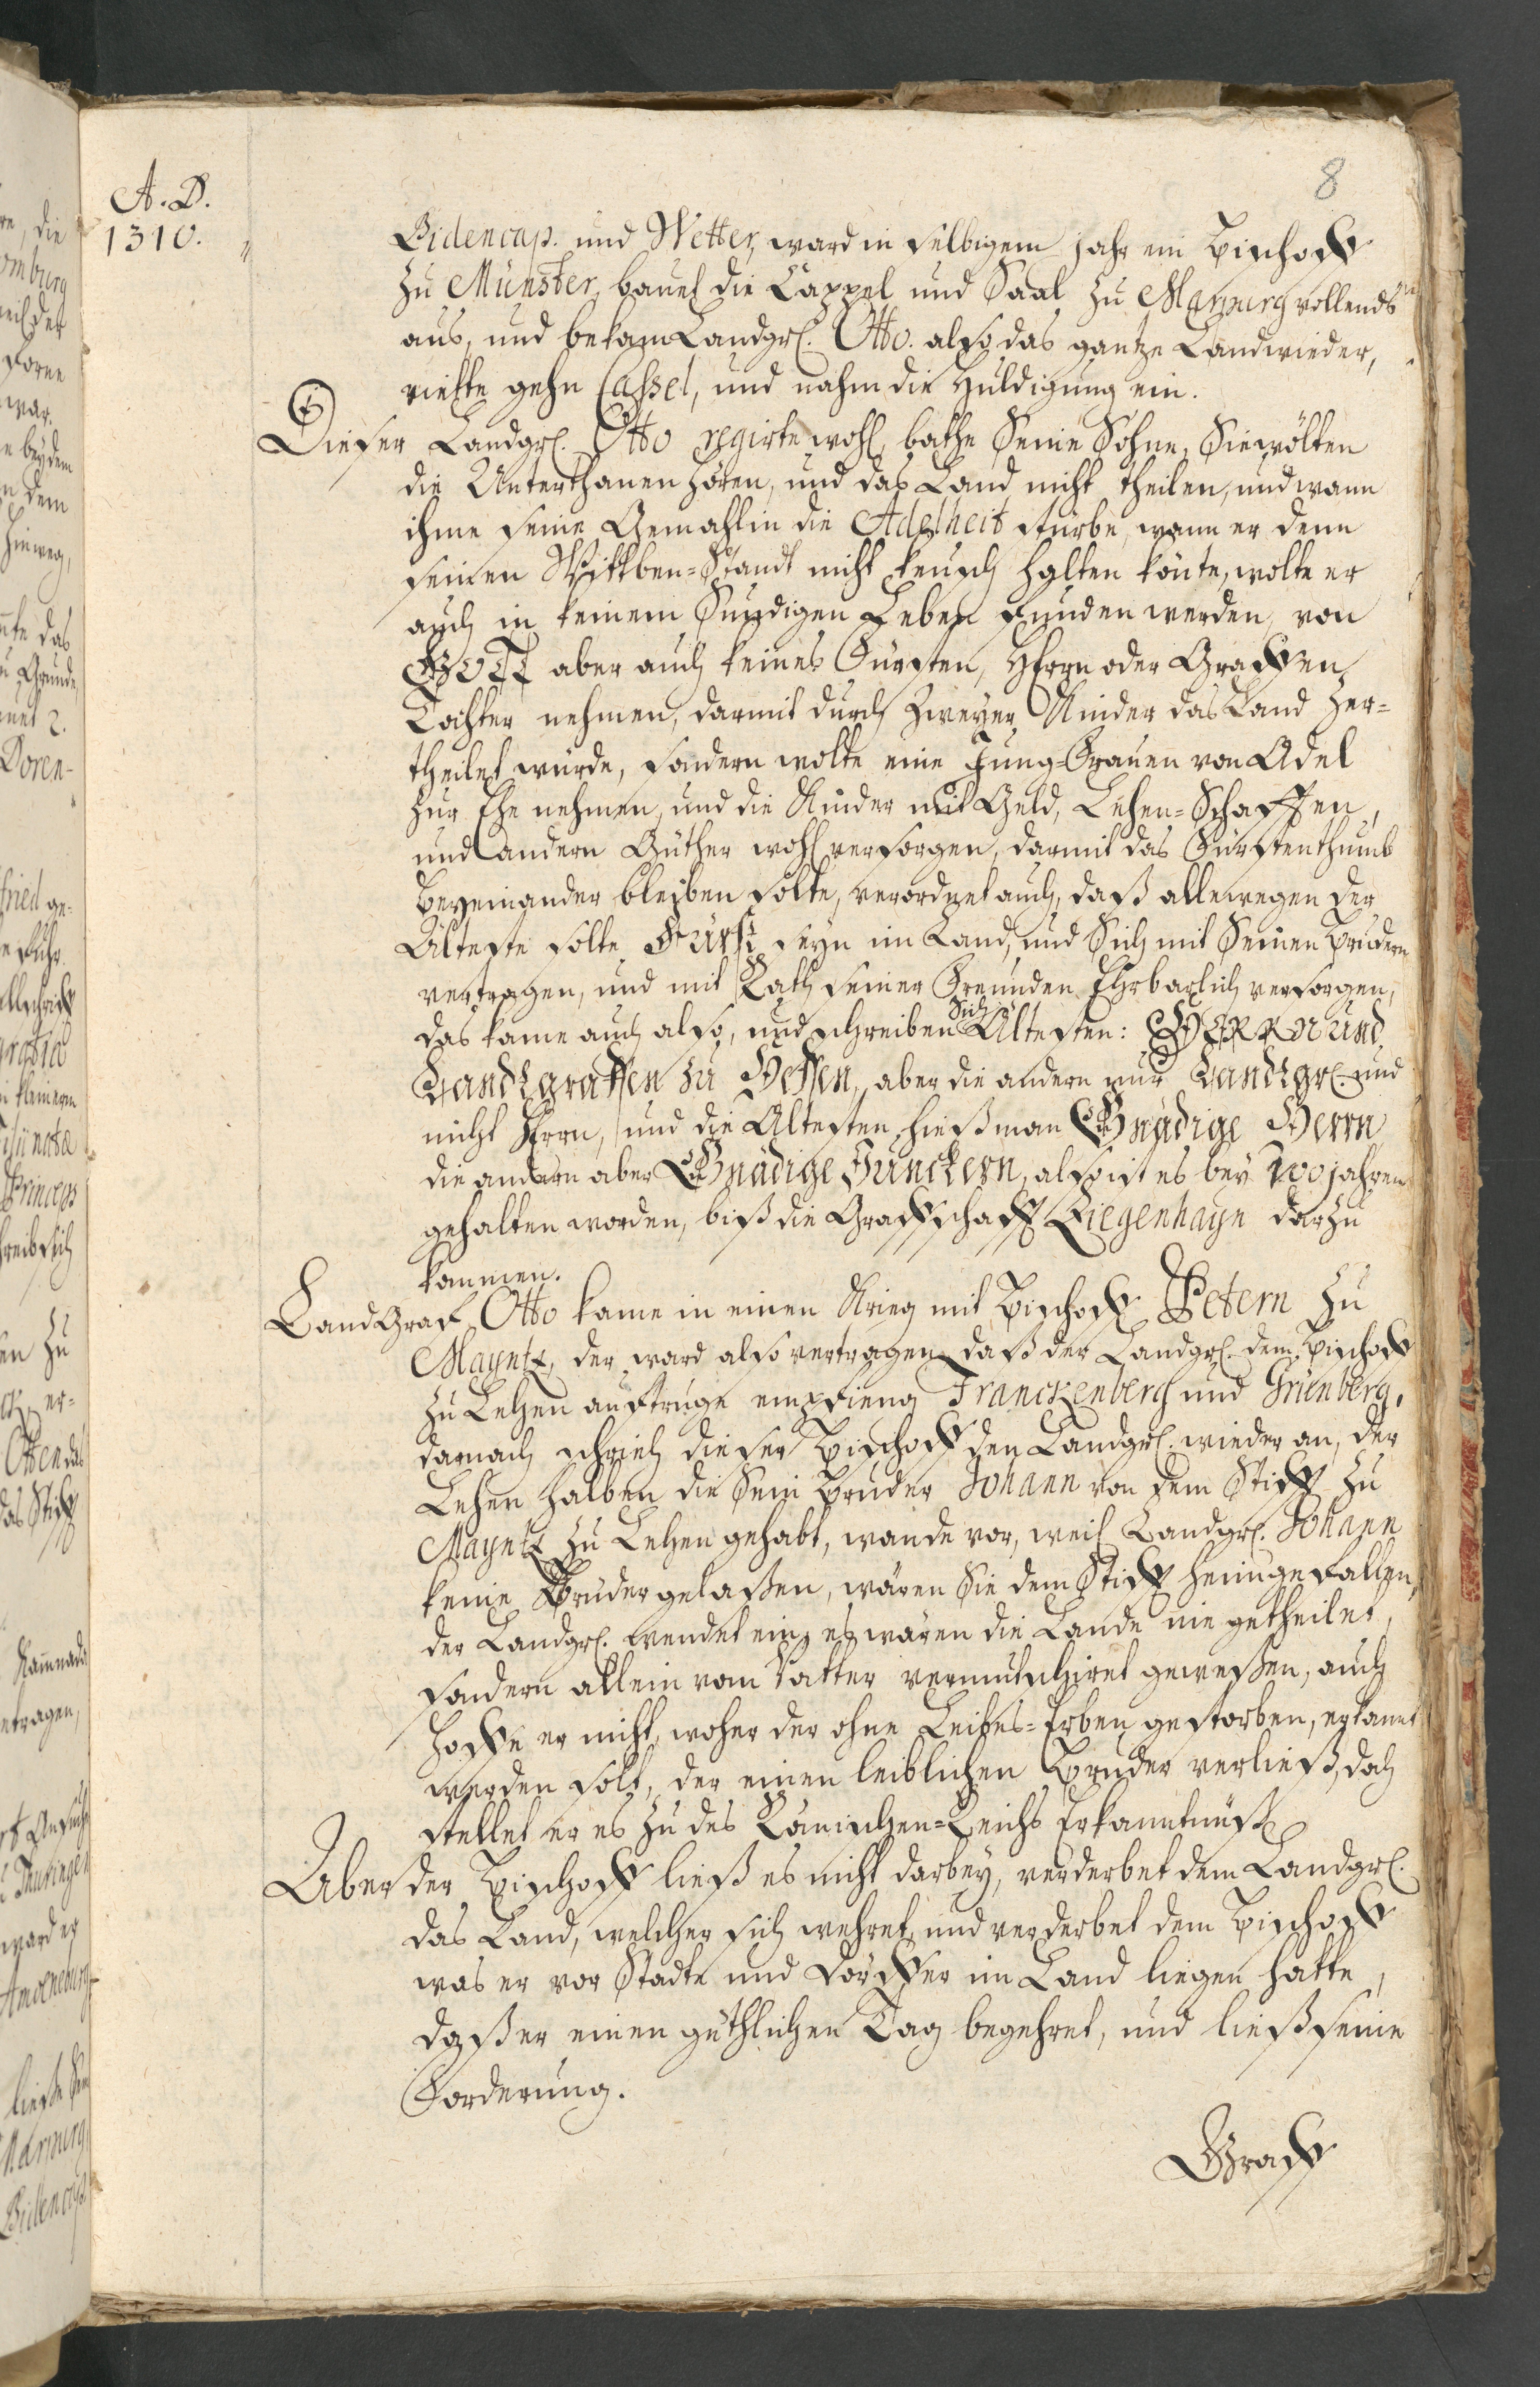 8
A. D.
1310.
Bidencap. und Wetter, ward in selbigem Jahr ein Bischoff
zu Münster, bauet die Cappel und Saal zu Marpurg vollends
aus, und bekam Landgr. Otto. also das gantze Land wieder,
rückte gehn Cassel, und nahm die Huldigung ein.
Dieser Landgr. Otto regirte wohl, bathe Seine Söhne, Sie wolten
die Unterthanen hören, und das Land nicht theilen, und wann
ihme seine Gemahlin die Adelheit stürbe, wann er denn
seinen Wittben-Standt nicht keusch halten könte, wolte er
auch in keinem Sündigen Leben funden werden, von
GOTT aber auch keines Fürsten, Herrn oder Graffen
Tochter nehmen, darmit durch zweyer Kinder das Land zer-
theilet würde, sondern wolte eine Jung-Frauen von Adel
zur Ehe nehmen, und die Kinder mit Geld, Lehen-Schafften,
und andern Güther wohl versorgen, darmit das Fürstenthumb
beyeinander bleiben solte, verordnet auch, daß allewegen der
Älteste solte Fürst seyn im Land, und Sich mit Seinen Brüdern
vertragen, und mit Rath seiner Freunden Ehrbarlich versorgen,
das kame auch also, und schreiben Sich Ältesten: HERRN und
Landgraffen zu Hessen, aber die andern nur Landgr. und
nicht Herrn, und die Ältesten, hieß man Gnädige Herrn
die andern aber Gnädige Junckern, also ist es bey 200 jahren
gehalten worden, biß die Graffschafft Ziegenhayn darzu
kommen.
LandGraf Otto kame in einen Krieg mit Bischoff Petern zu
Mayntz, der ward also vertragen, daß der Landgr. dem Bischoff
zu Lehen auftruge empfieng Franckenberg und Grünberg,
darnach schrieb dieser Bischoff den Landgr. wieder an, der
Lehen halben die Sein Bruder Johann von dem Stifft zu
Mayntz zu Lehen gehabt, wande vor, weil Landgr. Johann
keine Bruder gelaßen, wären Sie dem Stifft heimgefallen,
der Landgr. wendet ein, es wären die Lande nie getheilet,
sondern allein vom Vatter vermutschiret geweßen, auch
hoffe er nicht, woher der ohne Leibes-Erben gestorben, erkannt
werden solt, der einen leiblichen Bruder verließ, doch
stellet er es zu des Römischen-Reichs Erkanntnüß
Aber der Bischoff ließ es nicht darbey, verderbet dem Landgr.
das Land, welcher sich wehret, und verderbet dem Bischoff
was er vor Städte und Dörffer im Land liegen hatte,
daß er einen güthlichen Tag begehret, und ließ seine
Forderung.
Graff